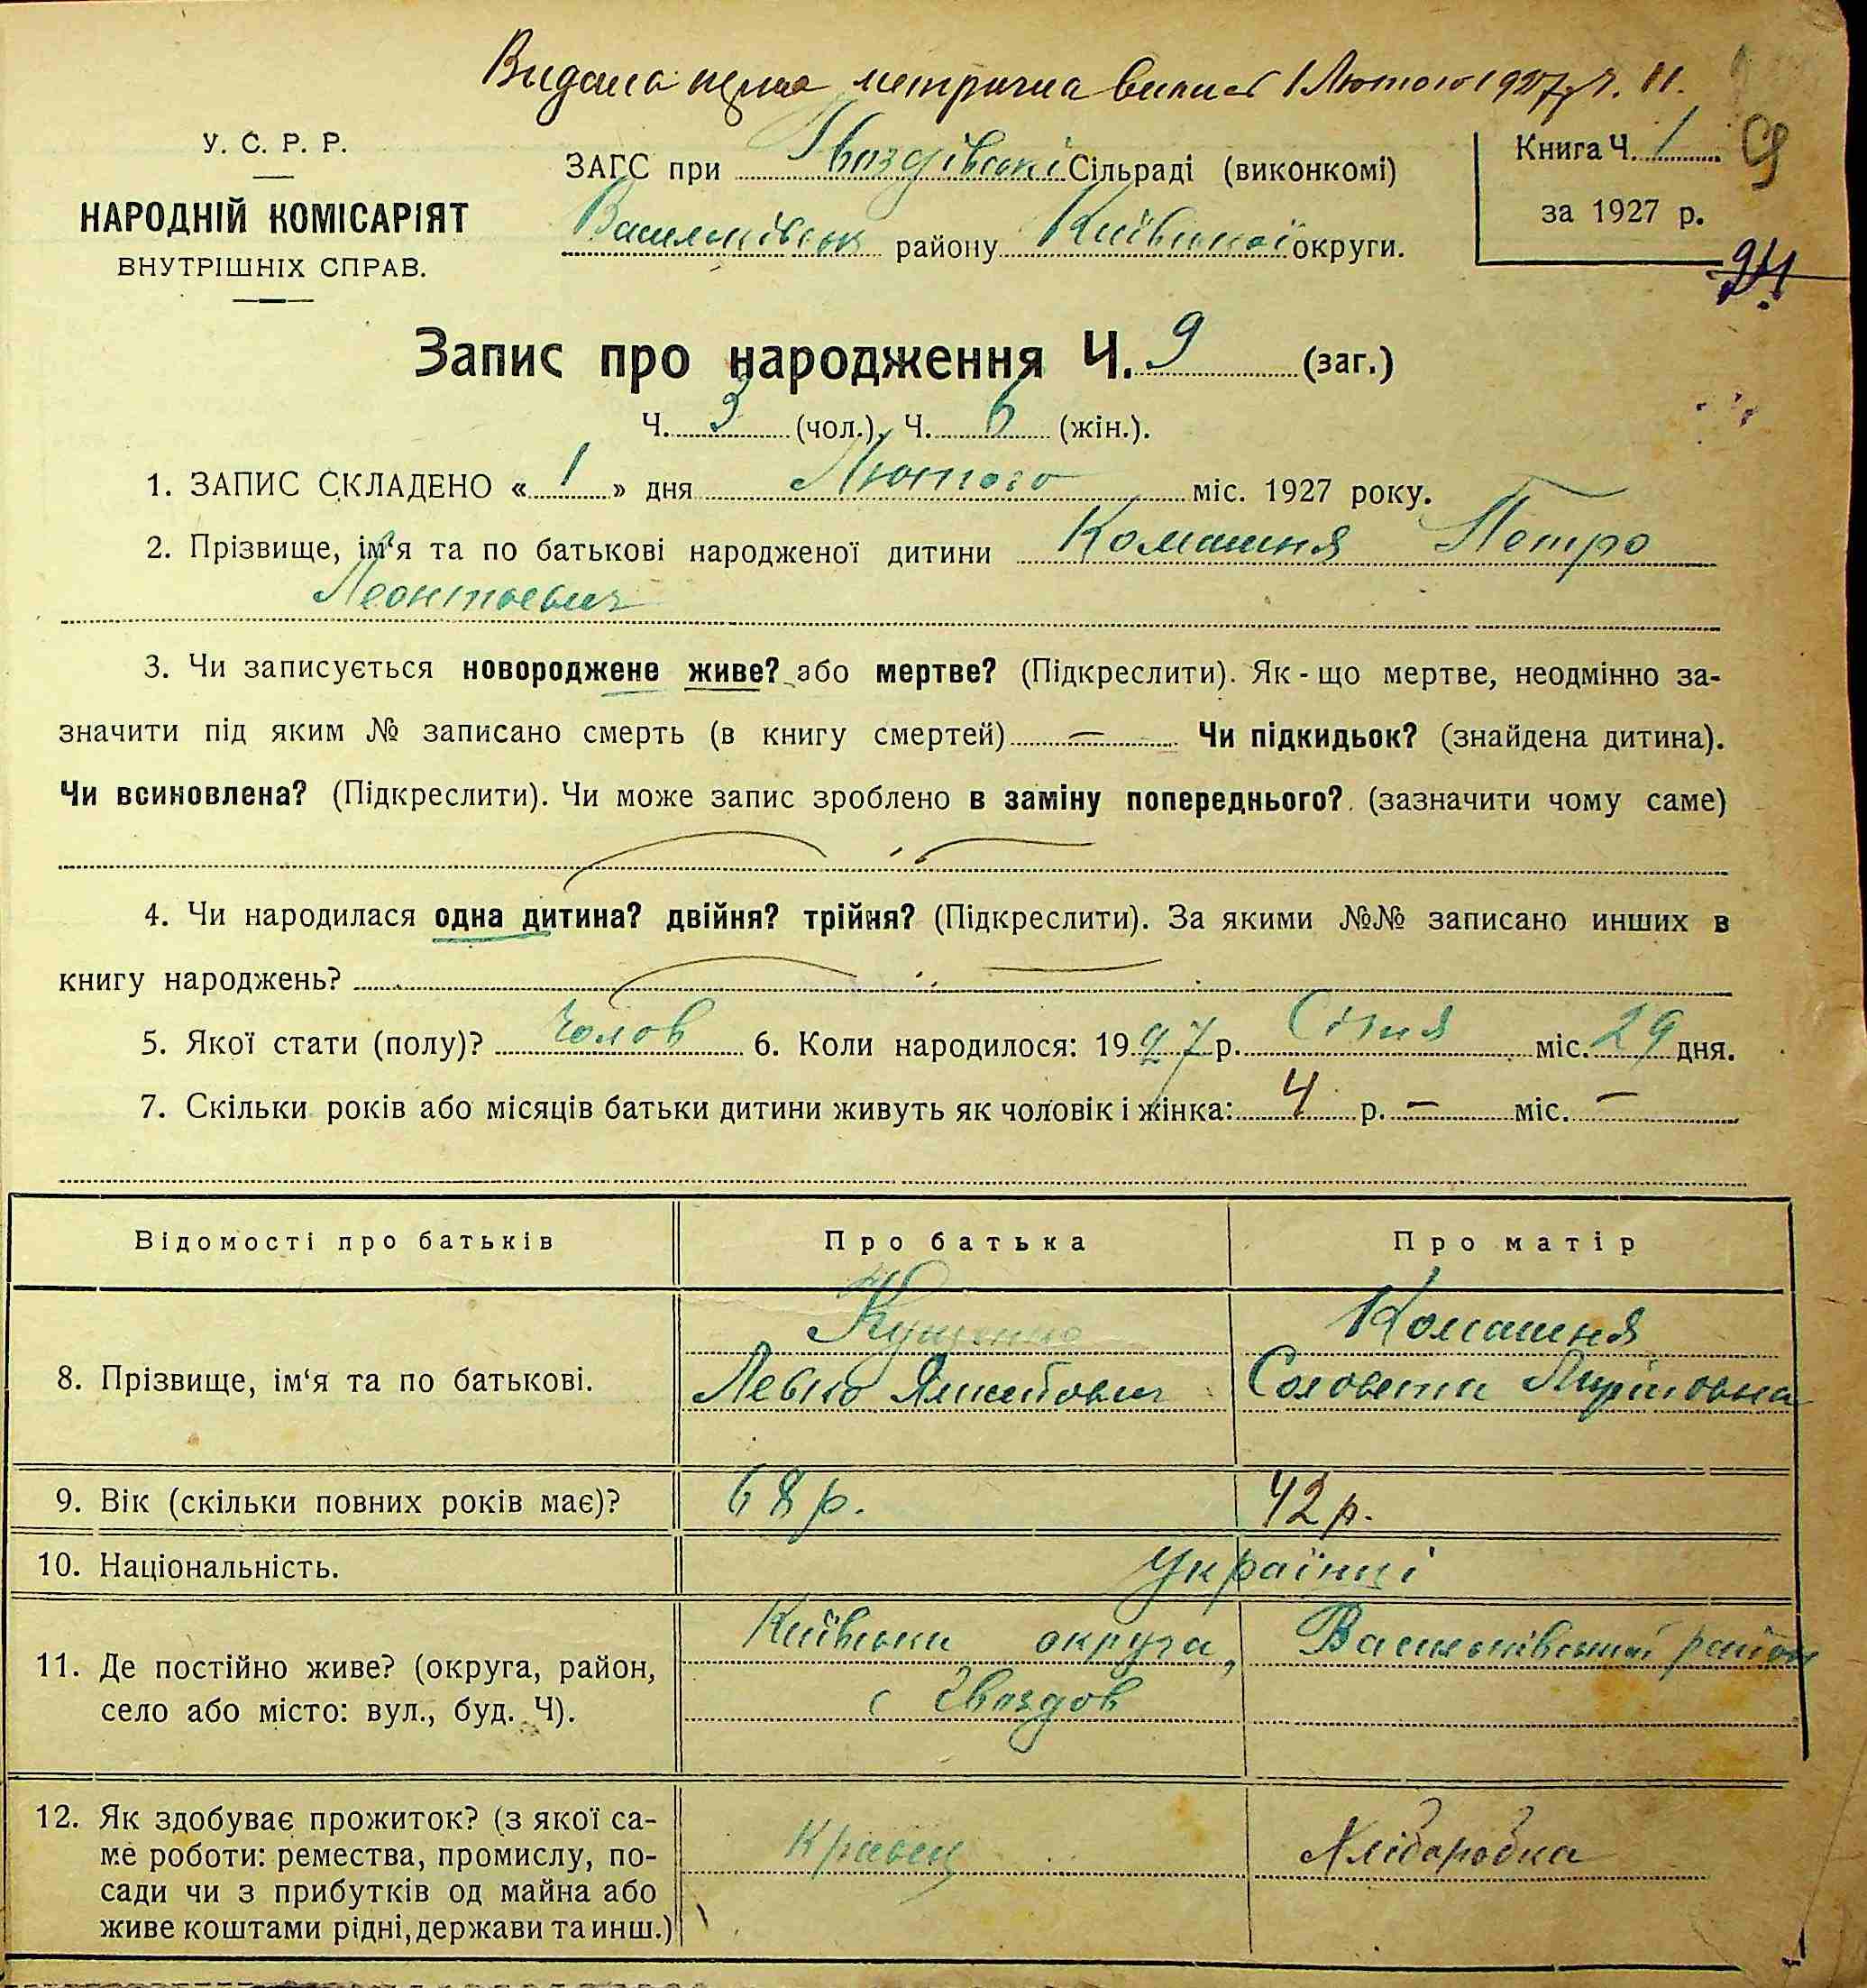 Видана перша метрична випись 1 Лютого 1927 р. Ч. 11.
У. С. Р. Р.
НАРОДНІЙ КОМІСАРІЯТ
ВНУТРІШНІХ СПРАВ.
ЗАГС при Гвоздівській Сільраді (виконкомі)
Васильківськ району Київської округи.
Книга Ч. 1
за 1927 р.
9
24
Запис про народження Ч. 9 (заг.)
Ч. 3 (чол.), Ч. 6 (жін.).
1. ЗАПИС СКЛАДЕНО « 1 » дня Лютого міс. 1927 року.
2. Прізвище, ім‘я та по батькові народженої дитини Комашня Петро
Леонтьевич
3. Чи записується новороджене живе? або мертве? (Підкреслити). Як - що мертве, неодмінно за-
значити під яким № записано смерть (в книгу смертей) — Чи підкидьок? (знайдена дитина).
Чи всиновлена? (Підкреслити). Чи може запис зроблено в заміну попереднього? (зазначити чому саме)
4. Чи народилася одна дитина? двійня? трійня? (Підкреслити). За якими №№ записано инших в
книгу народжень?
5. Якої стати (полу)? Чолов 6. Коли народилося: 1927 р. Січня міс. 29 дня.
7. Скільки років або місяців батьки дитини живуть як чоловік і жінка: 4 р. — міс. —
Відомості про батьків Про батька Про матір
Комашня
8. Прізвище, ім‘я та по батькові. Левко
9. Вік (скільки повних років має)? 68 р. 42 р.
10. Національність. Українці
11. Де постійно живе? (округа, район, Київська округа, Васильківський район
село або місто: вул., буд. Ч). с Гвоздов
12. Як здобуває прожиток? (з якої са- Кравец Хліборобка
ме роботи: ремества, промислу, по-
сади чи з прибутків од майна або
живе коштами рідні, держави та инш.)